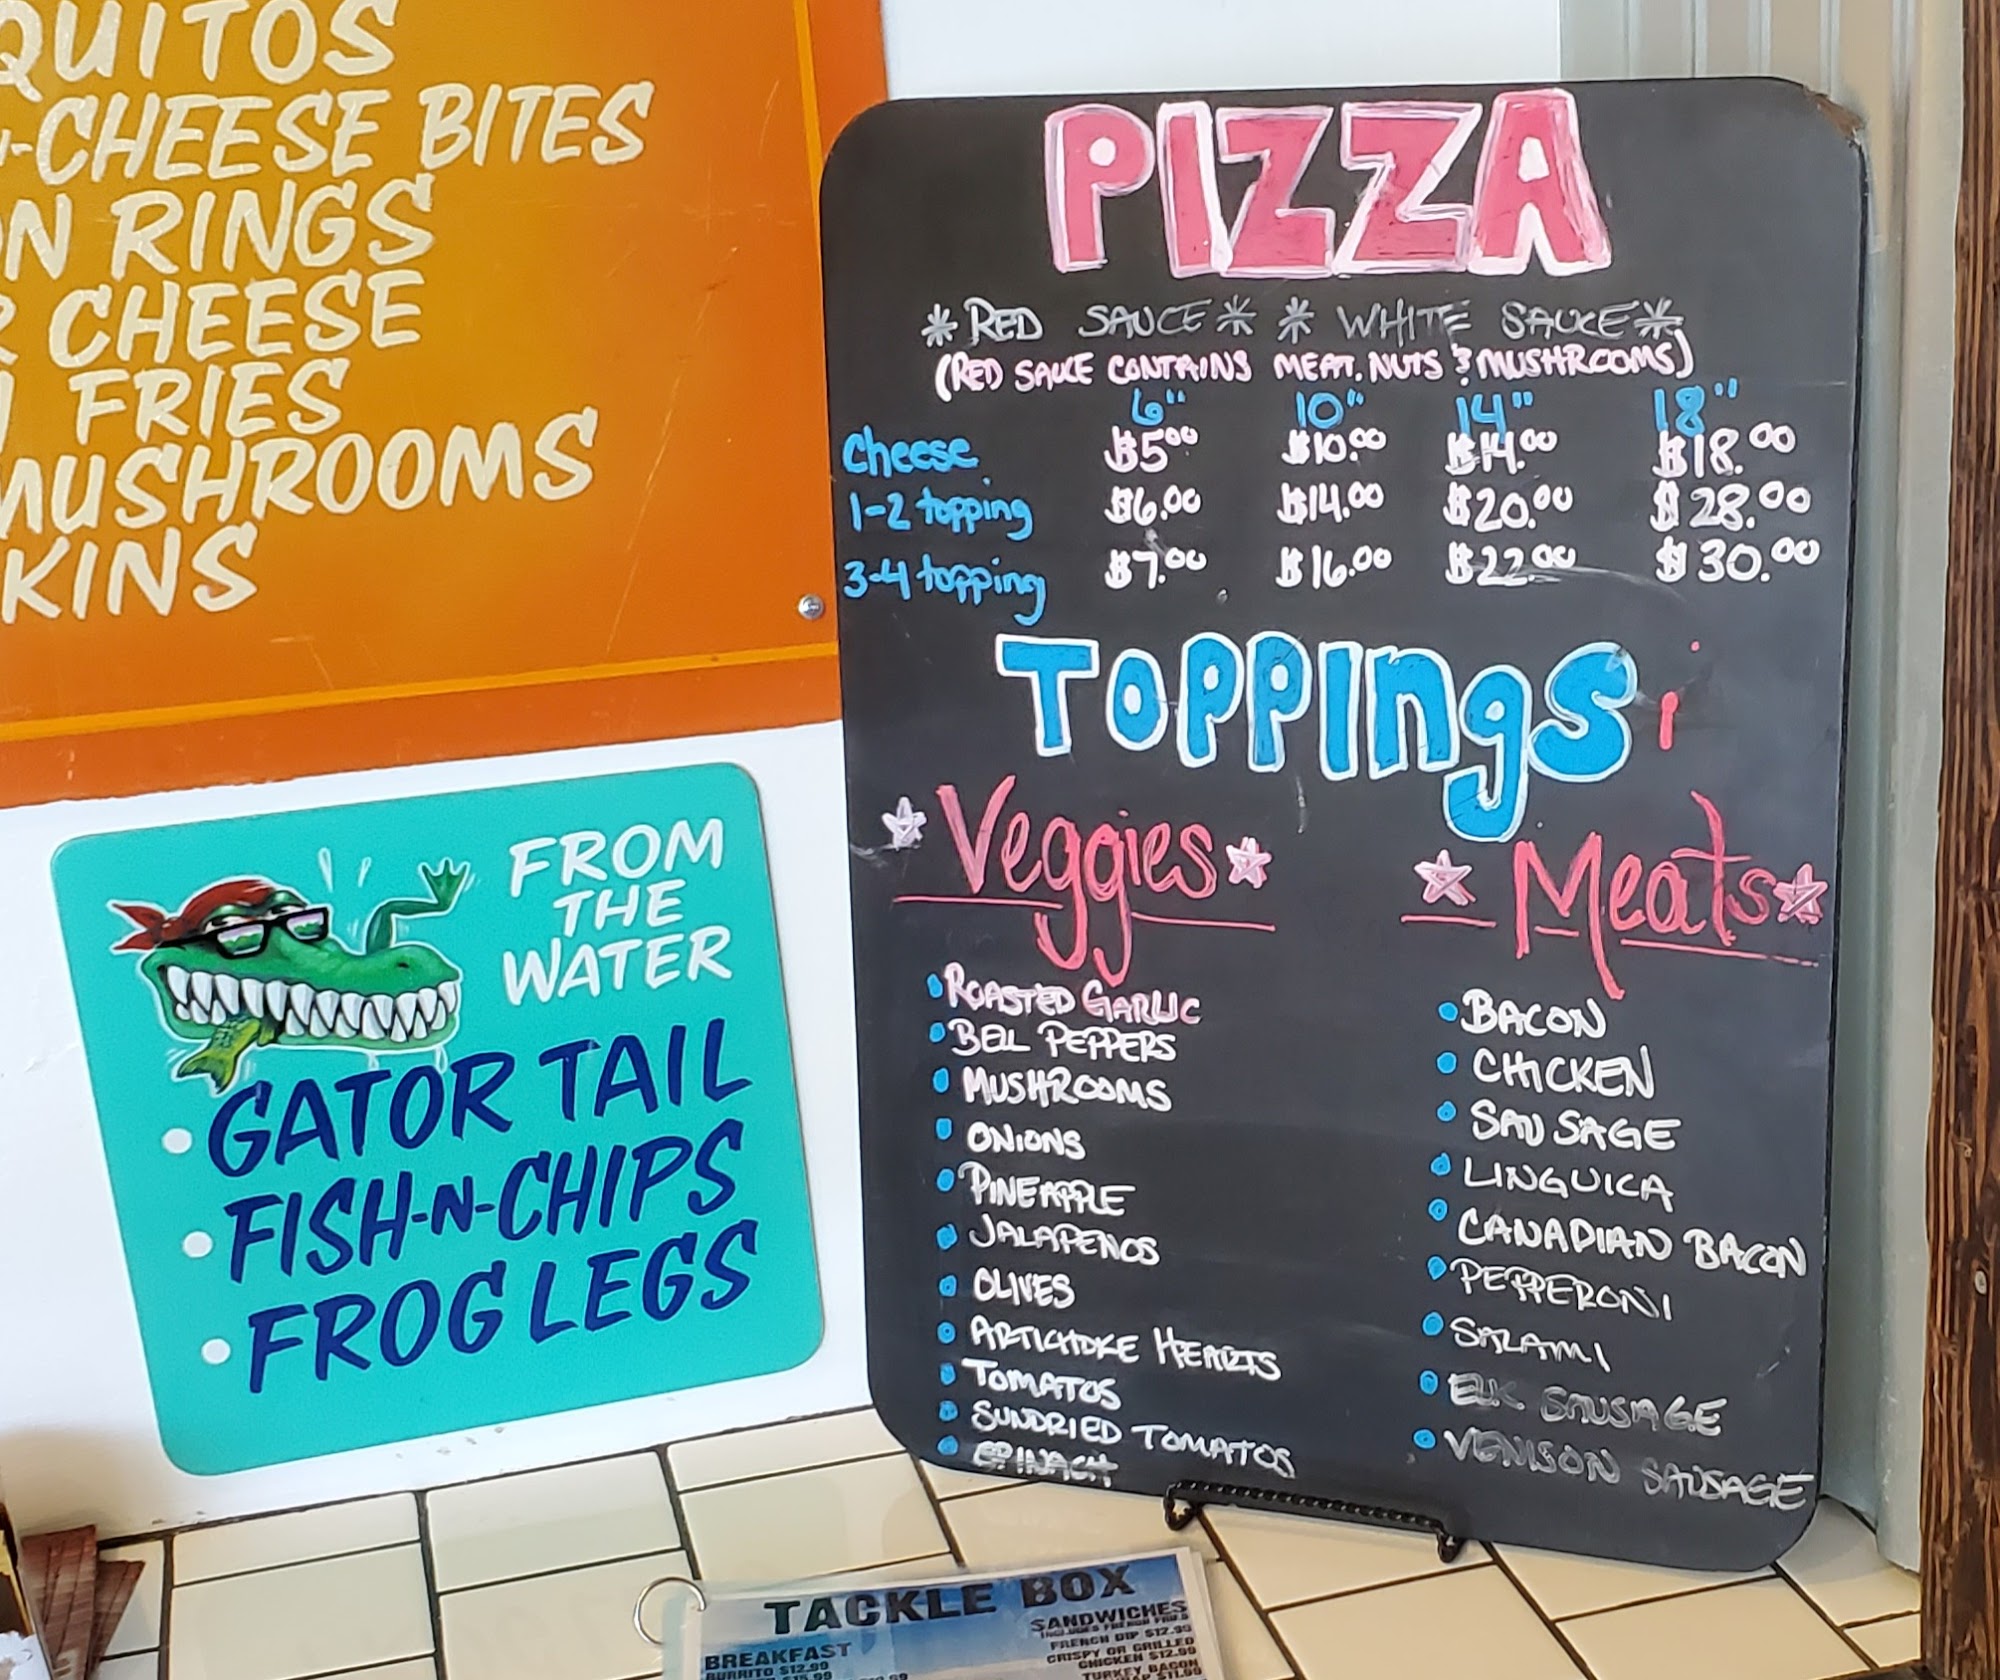 QUITOS
-CHEESE BITES
ON RINGS
R CHEESE
FRIES
MUSHROOMS
KINS
FROM
THE
WATER
• GATOR TAIL
• FISH-N-CHIPS
• FROG LEGS
PIZZA
*RED SAUCE* * WHITE SAUCE*
(RED SAUCE CONTAINS MEAT. NUTS & MUSHROOMS)
6" 10" 14" 18"
Cheese $5.00 $10.00 $14.00 $18.00
1-2 topping $6.00 $14.00 $20.00 $28.00
3-4 topping $7.00 $16.00 $22.00 $30.00
TOPPINgS
Veggies
• ROASTED GARLIC
• BELL PEPPERS
• MUSHROOMS
• ONIONS
• PINEAPPLE
• JALAPENOS
• OLIVES
• ARTICHOKE HEARTS
• TOMATOS
• SUNDRIED TOMATOS
• SPINACH
Meats
• BACON
• CHICKEN
• SAUSAGE
• LINGUICA
• CANADIAN BACON
• PEPPERONI
• SALAMI
• ELK SAUSAGE
• VENISON SAUSAGE
TACKLE BOX
BREAKFAST
BURRITO $12.99
SANDWICHES
INCLUDES FRENCH FRIES
FRENCH DIP $12.99
CRISPY OR GRILLED
CHICKEN $12.99
TURKEY BACON
$11.99